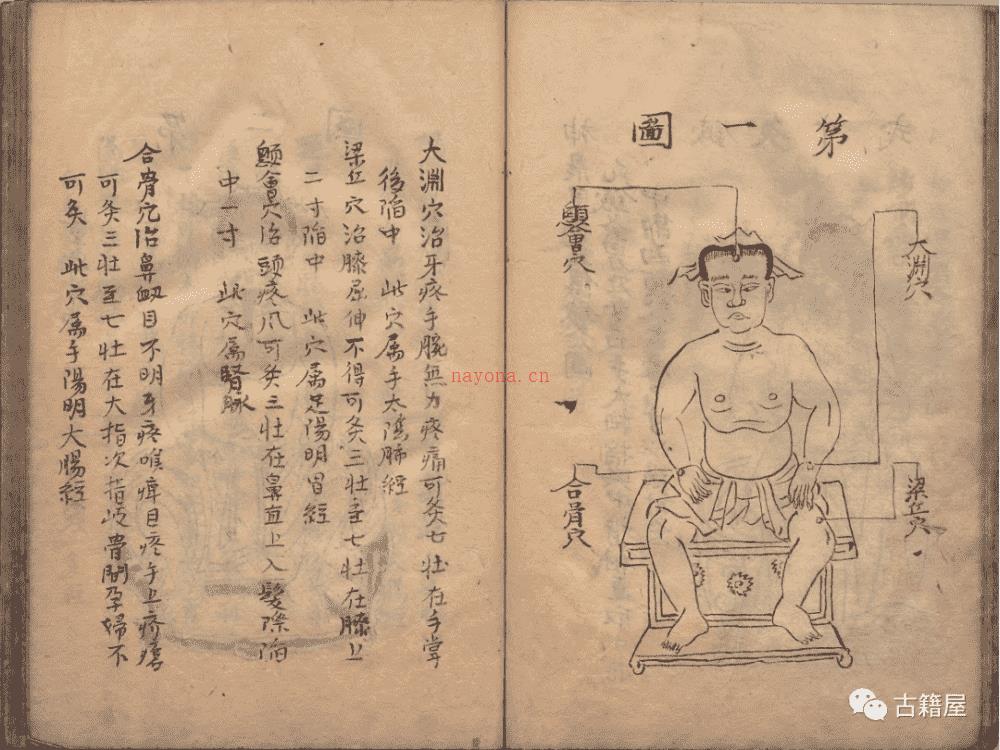 第一圖
大淵穴
顖會穴
合骨穴
梁丘穴
大淵穴治牙疼手腕無力疼痛可灸七壯在手掌
後陷中 此穴屬手太陰肺經
梁丘穴治膝屈伸不得可灸三壯至七壯在膝上
二寸陷中 此穴属足陽明胃經
顖會穴治頭疼爪可灸三壯在鼻直上入髮際陷
中一寸 此穴属腎脉
合骨穴治鼻衂目不明牙疼喉痺目疼手上疥瘡
可灸三壯至七壯在大指次指岐骨間孕婦不
可灸 此穴属手陽明大腸經
nayona.cn
古籍屋